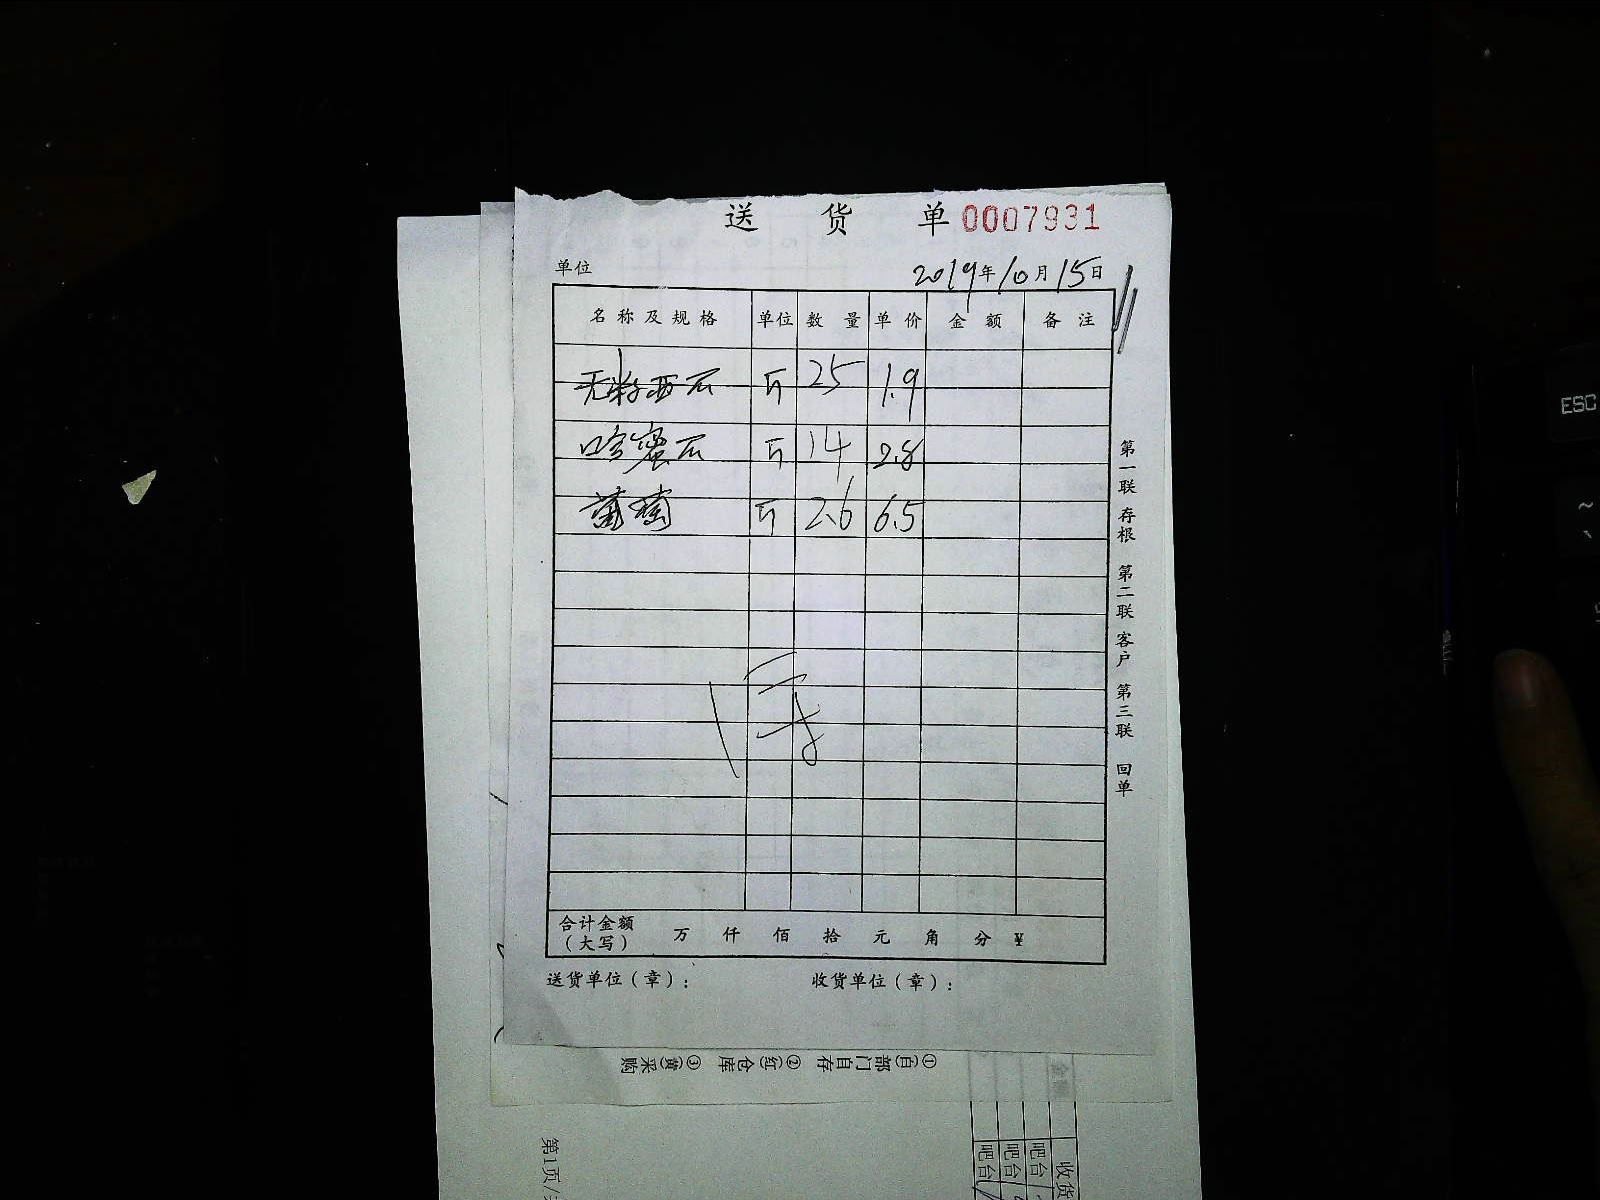 送货单 0007931
单位 2019年10月15日
名称及规格 单位 数量 单价 金额 备注
无籽西瓜 斤 25 1.9
哈密瓜 斤 14 2.8
葡萄 斤 2.6 6.5
合计金额
(大写) 万 仟 佰 拾 元 角 分 ¥
送货单位(章): 收货单位(章):
第一联 存根 第二联 客户 第三联 回单
①(白)部门自存 ②(红)仓库 ③(黄)采购
第1页/
收货
吧台
吧台
吧台
ESC